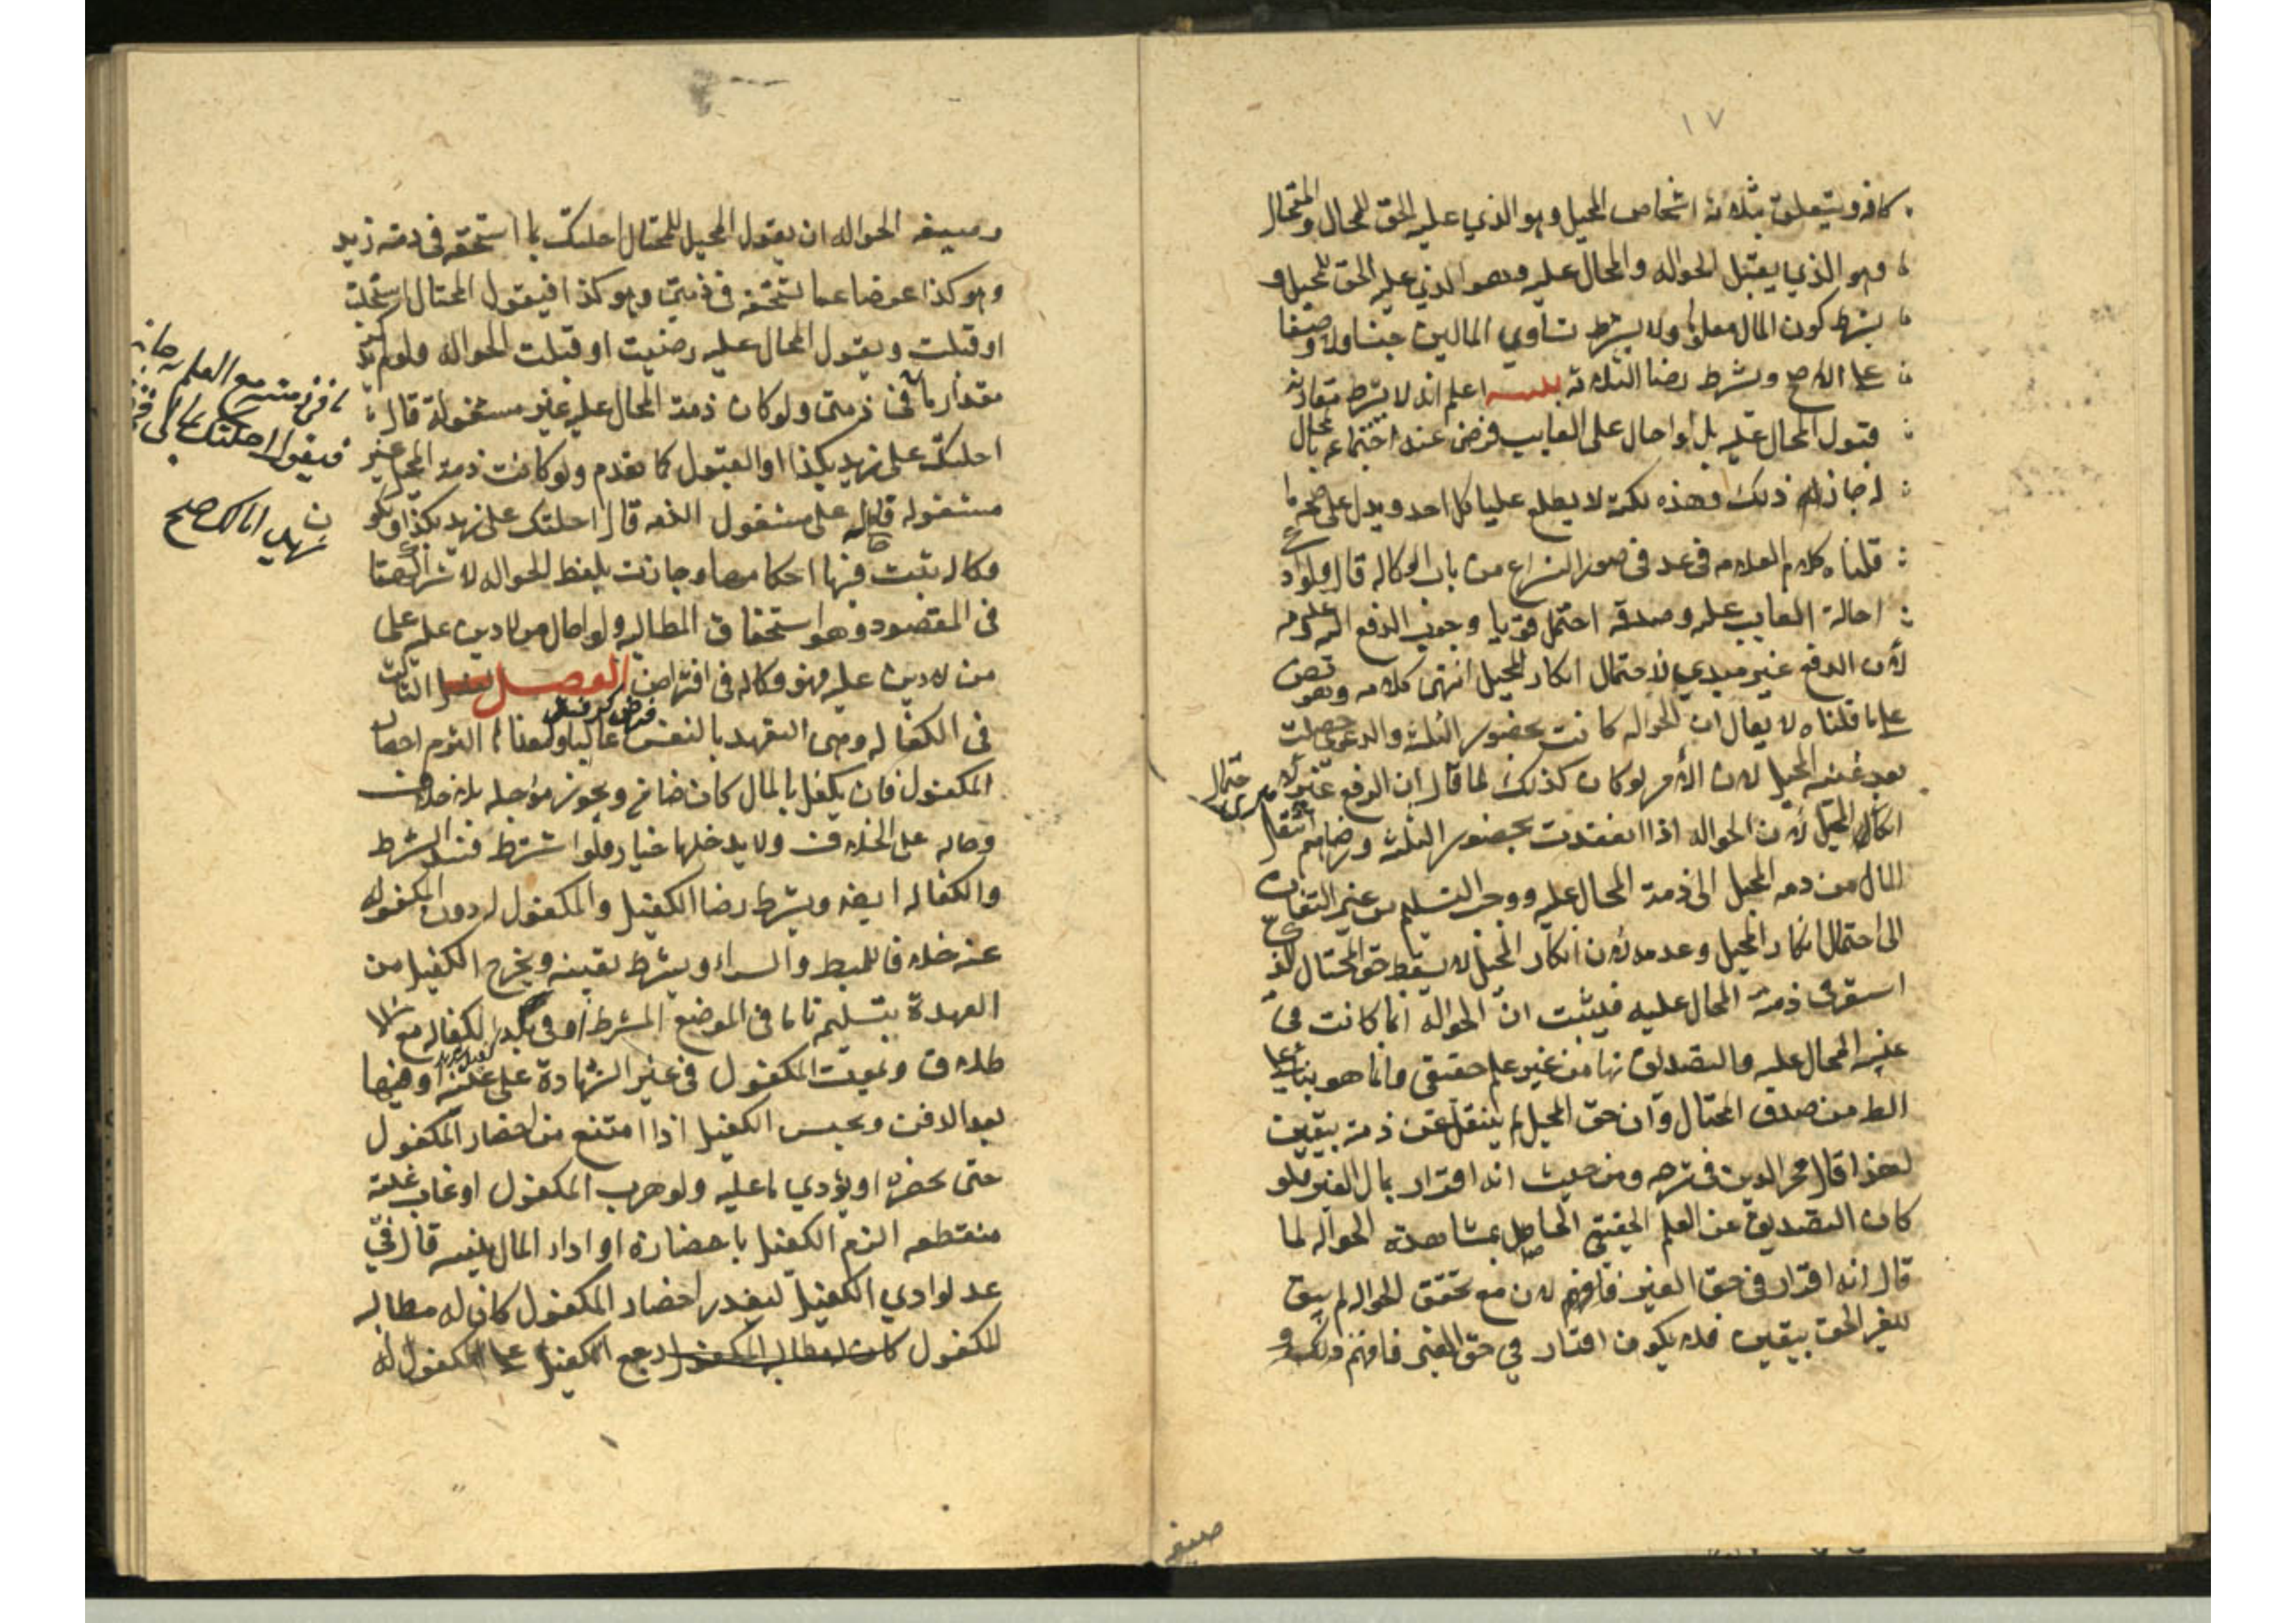 ١٧
كافه ويتعلق بثلاثة اشخاص المحيل وهو الذي عليه الحق للمحال والمحتال
وهو الذي يقبل الحواله والمحال عليه وهو الذي عليه الحق للمحيل و
يشترط كون المال معلوما ولا يشترط تساوي المالين جنسا ولا وصفا
على الاصح ويشترط رضا الثلاثة اعلم انه لا يشترط مقارنة
قبول المحال عليه بل لو احال على الغايب فرضي عند اجتماعه بالمحال
له جاز له ذلك وهذه نكتة لا يطلع عليها كل احد ويدل على صحة ما
قلناه كلام العلامه في عد في صور النزاع من باب الوكاله قال ولو ادعى
احالة الغايب عليه وصدقه احتمل قويا وجوب الدفع اليه وعدمه
لأن الدفع غير مبرئ لاحتمال انكار المحيل انتهى كلامه وهو نص
على ما قلناه لا يقال ان الحواله كانت بحضور الثلثه والدعوى حصلت
بعد غيبة المحيل لان الأمر لو كان كذلك لما قال ان الدفع غير مبرئ لاحتمال
انكار المحيل لان الحواله اذا انعقدت بحضور الثلثه ورضاهم انتقل
المال من ذمه المحيل الى ذمة المحال عليه ووجب التسليم من غير التفات
الى احتمال انكار المحيل وعدمه لان انكار المحيل لا يسقط حق المحتال الذي
استقر في ذمة المحال عليه فيثبت ان الحواله انما كانت في
غيبة المحال عليه والتصديق نها من غير علم حقيقي وانما هو بناء على
الظ من صدق المحتال وان حق المحيل لم ينتقل عن ذمته بيقين
لهذا قال فخر الدين في شرحه ومن حيث انه اقرار بمال الغير فلو
كان التصديق عن العلم الحقيقي الحاصل بمشاهدة الحواله لما
قال انه اقرار في حق الغير فافهم لان مع تحقق الحواله لم يبق
للغير الحق بيقين فلا يكون اقرار في حق الغير فافهم ذلك و
صيغه
وصيغه الحواله ان يقول المحيل للمحتال احلتك بما استحقه في ذمة زيد
وهو كذا عوضا عما تستحقه في ذمتي وهو كذا فيقول المحتال استحلت
او قبلت ويقول المحال عليه رضيت او قبلت الحواله ولو لم
مقدار ما في ذمتي ولو كان ذمة المحال عليه غير مشغولة قال
احلتك على زيد بكذا والقبول كما تقدم ولو كانت ذمة المحيل غير
مشغوله على مشغول الذمه قال احلتك على زيد بكذا
وكاله يثبت فيها احكامها وجازت بلفظ الحواله لاشتراكهما
في المقصود وهو استحقاق المطالبه ولو احال من لا دين عليه على
من لا دين عليه فهو وكاله في اقتراض الفصل الثالث
في الكفاله وهي التعهد بالنفس غالبا احضار
المكفول فان يكفل بالمال كان ضامن ويجوز مؤجله بلا خلاف
وحاله على الخلاف ولا يدخلها خيار فلو اشترط فسد الشرط
والكفاله ايضا ويشترط رضا الكفيل والمكفول له دون المكفول
عنه خلافا للمبسط والسرائر ويشترط تعيينه ويخرج الكفيل من
العهدة بتسليم تاما في الموضع المشترط او في بلد الكفاله مع الا
طلاق وبموت المكفول في غير الشهادة على عينه وفيها
بعد الدفن ويحبس الكفيل اذا امتنع من احضار المكفول
حتى يحضره او يؤدي ما عليه ولو هرب المكفول او غاب غيبة
منقطعه الزم الكفيل باحضاره او اداء المال قال في
عد لو ادي الكفيل لتعذر احضار المكفول كان له مطالبه
المكفول رجع الكفيل على المكفول له
مع العلم
فيقول احلتك
زيد